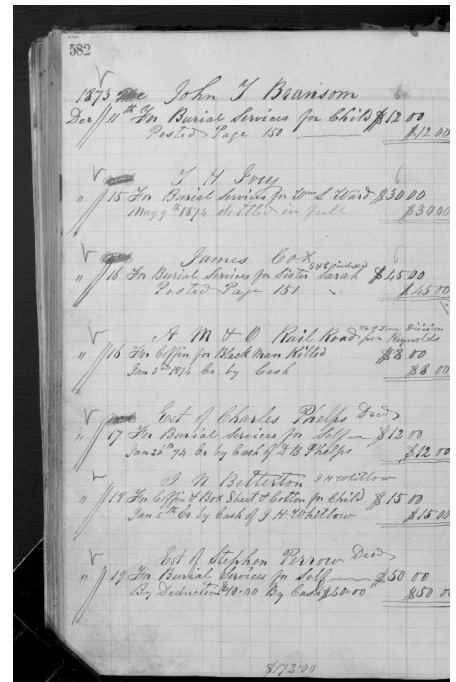 582
1873 John T Bransom
Dec 11th For Burial Services for Child $12 00
Posted Page 150 $12 00
T. H. Ivey
" 15 For Burial Services for Wm S Ward $30 00
May 9th 1874 Settled in full $30 00
James Cox
" 16 For Burial Services for Sister Sarah $45 00
Posted Page 151 $45 00
A M & O Rail Road per Reynolds
" 16 For Coffin for Black Man Killed $8 00
Jan 3rd 1874 Cr by Cash $8 00
Est of Charles Phelps Decd
" 17 For Burial Services for Self $12 00
Jan 26 74 Cr by Cash of D B Phelps $12 00
J N Betterton J H Whitlow
" 18 For Coffin & Box Sheet & Cotton for Child $15 00
Jan 5th Cr by Cash of J H Whitlow $15 00
Est of Stephen Perrow Decd
" 19 For Burial Services for Self $50 00
By Deduction $10.00 By Cash $40.00 $50 00
$172.00